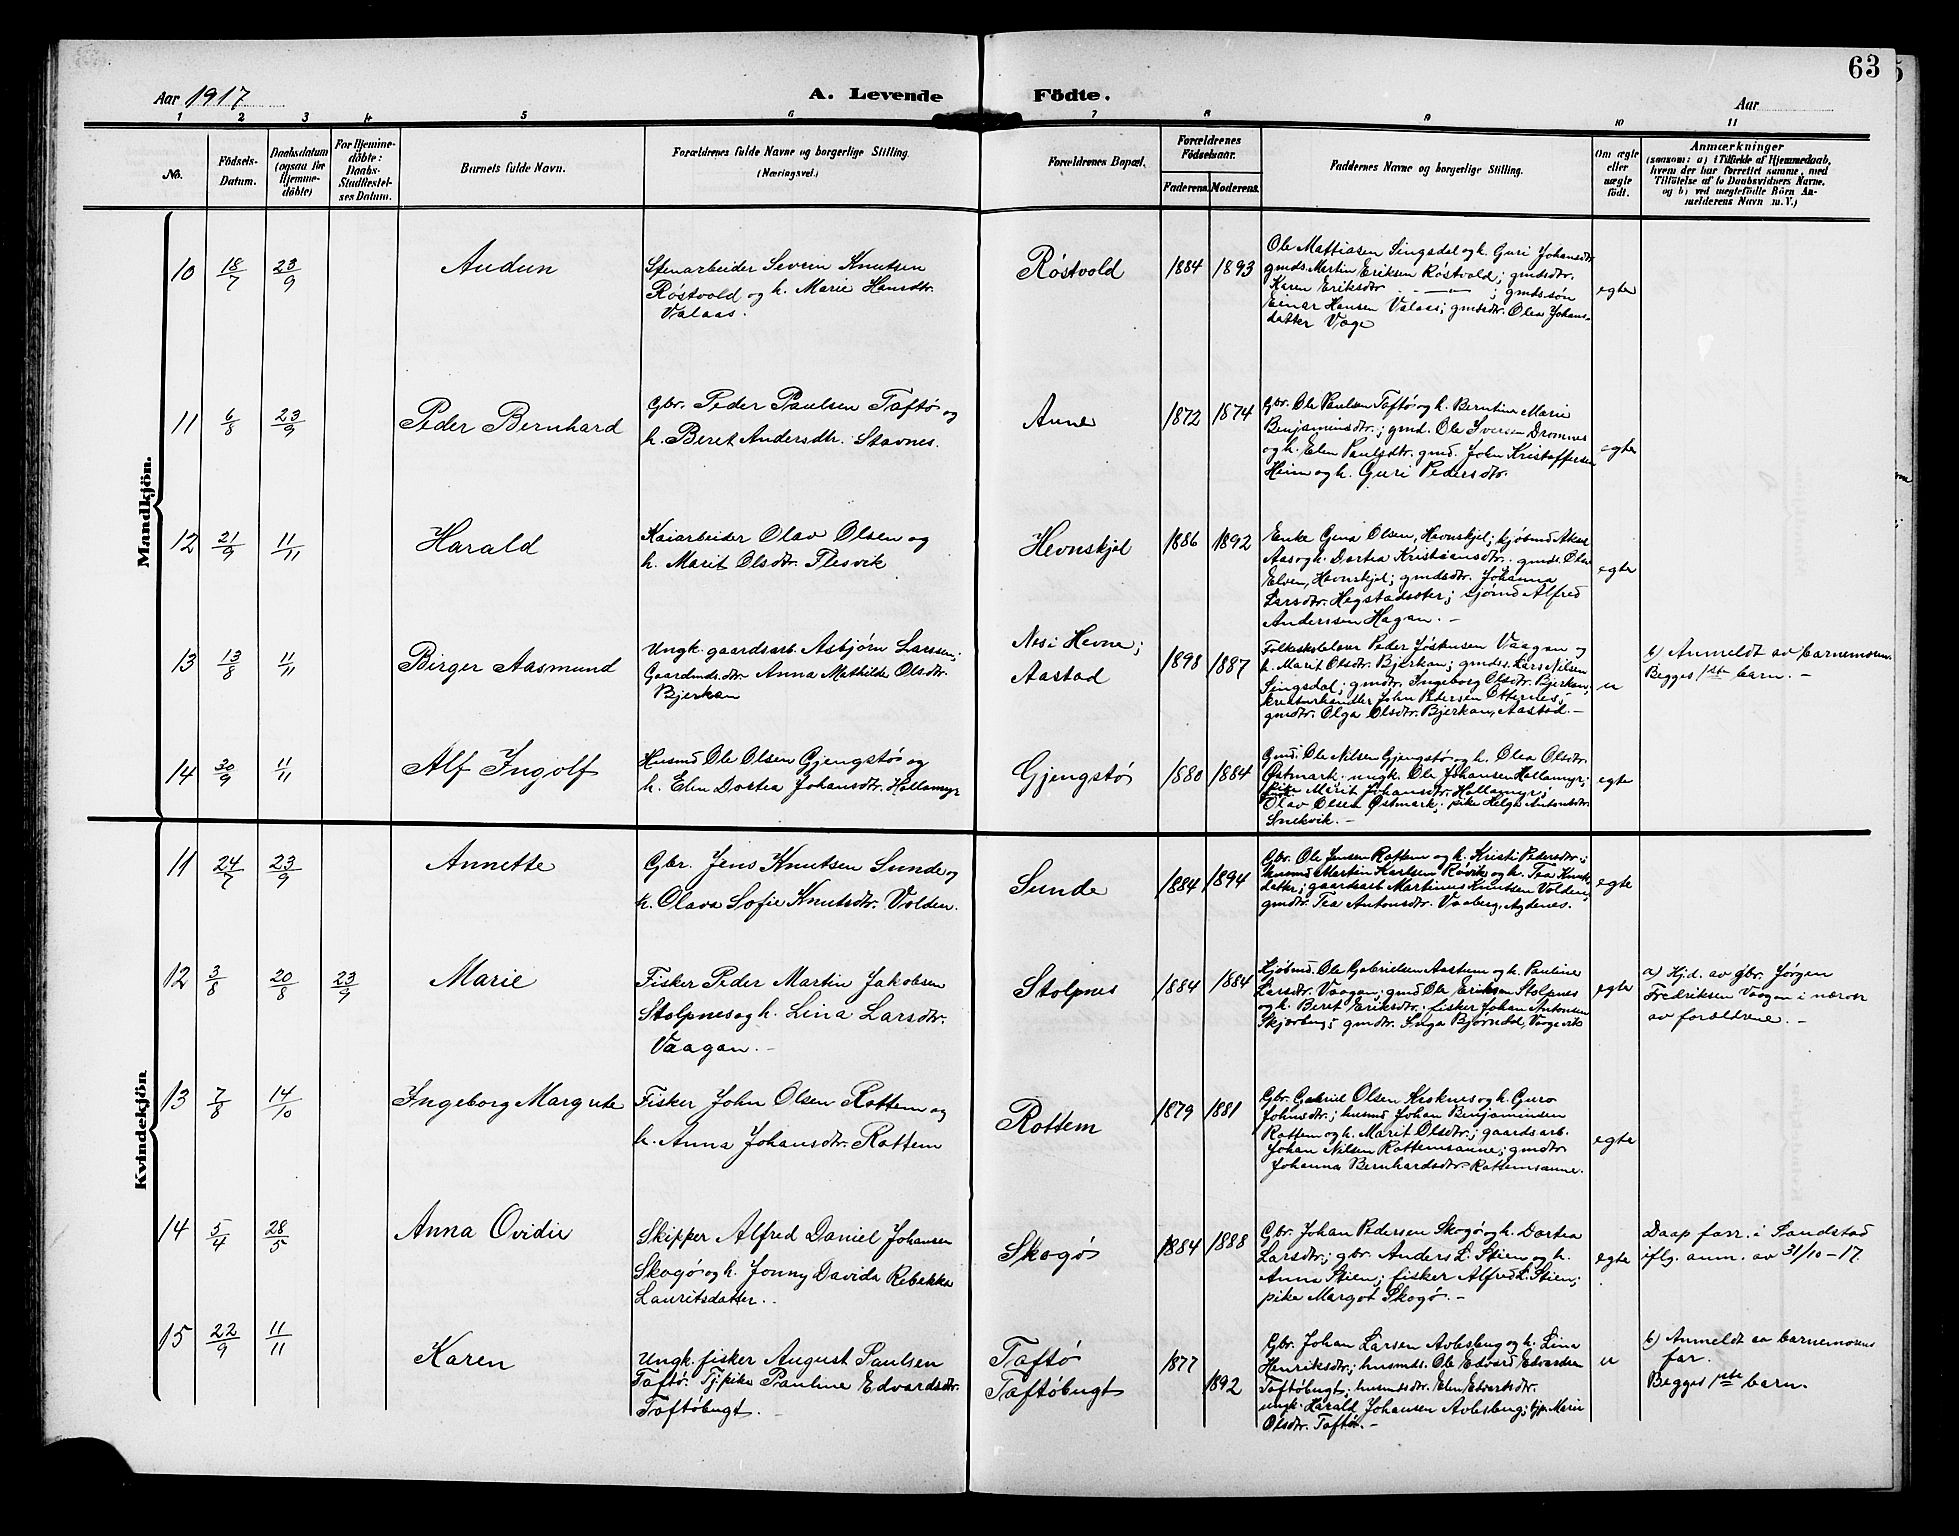 63
Aar 1917
A. Levende Födte.
Aar
1 2 3 4 5 6 7 8 9 10 11
No.
Födsels-Datum.
Daabsdatum (ogsaa for Hjemme-döbte)
For Hjemme-döbte: Daabs-Stadfæstel-ses Datum.
Barnets fulde Navn.
Forældrenes fulde Navne og borgerlige Stilling.
(Næringsvei.)
Forældrenes Bopæl.
Forældrenes Födselsaar.
Faderens. Moderens.
Faddernes Navne og borgerlige Stilling.
Om ægte eller uægte födt.
Anmærkninger
(saasom: a) i Tilfælde af Hjemmedaab,
hvem der har forrettet samme, med
Tilföielse af to Daabsvidners Navne,
og b) ved uægtefödte Börn An-
melderens Navn m. V.)
Mandkjön.
10 18/7 23/9 Audun
Stenarbeider Severin Knutsen
Röstvold og h. Marie Hansdtr.
Valaas.
Röstvold 1884 1893
Ole Mattiasen Singsdal og h. Guri Johansdtr
gmds. Martin Eriksen Röstvold; gmdsdtr.
Karen Eriksdtr — " — ; gmdssön
Einar Hansen Valaas; gmdsdtr. Olea Johans-
datter Vage
egte
11 6/8 23/9 Peder Bernhard
Gbr. Peder Paulsen Taftö og
h. Beret Andersdtr. Stavnes.
Aune 1872 1874
Gbr. Ole Paulsen Taftö og h. Berntine Marie
Benjaminsdtr.; gmd. Ole Iversen Dromnes
og h. Elen Paulsdtr. gmd. John Kristoffersen
Heim og h. Guri Pedersdtr.
egte
12 21/9 11/11 Harald
Kaiarbeider Olav Olsen og
h. Marit Olsdtr. Flesvik
Hevnskjel 1886 1892
Enke Gina Olsen, Hevnskjel; kjöbmd
Aas og h. Dortea Kristiansdtr. gmds.
Elsen, Hevnskjel; gmdsdtr. Johanna
Larsdtr. Hegstadseter; sjömd Alfred
Anderssen Hagan. -
egte
13 13/8 11/11 Birger Aasmund
Ungk. gaardsarb. Asbjörn Larssen;
Gaardmds.dtr Anna Mathilde Olsdtr.
Bjerkan
Nes i Hevne;
Aastad
1898 1887
Folkeskolelærer Peder Vaagan og
h. Marit Olsdtr. Bjerkan; gmds. Lars Nilsen
Singsdal; gmdtr. Ingeborg Olsdtr. Bjerkan;
kreaturhandler John Pedersen Otternes;
gmdtr. Olga Olsdtr. Bjerkan, Aastad. -
u
b) Anmeldt av barnemoren.
Begges 1ste barn. -
14 30/9 11/11 Alf Ingolf
Husmd Ole Olsen Gjengstö og
h. Elen Dortea Johansdtr. Hollamyr
Gjengstö 1880 1884
Gmd. Ole Nilsen Gjengstö og h. Olea Olsdtr.
Östmark. ungk. Ole Johansen Hollamyr;
pike Marit Johansdtr. Hollamyr;
Olav Olsen Östmark; pike Helga Antonsdtr.
Snekvik. -
egte
Kvindekjön
11 24/7 23/9 Annette
Gbr. Jens Knutsen Sunde og
h. Olava Sofie Knutsdtr. Volden.
Sunde 1884 1894
Gbr. Ole Jensen Rottem og h. Kristi Pedersdtr.;
husmd Martin Karlsen Rövik og h. Tea Knuts-
datter; gaardsarb Martinus Knutsen Volden;
gmdtr. Tea Antonsdtr. Vaaberg, Agdenes.
egte
12 3/8 20/8 23/9 Marie
Fisker Peder Martin Jakobsen
Stolpnes og h. Lina Larsdtr.
Vaagan. -
Stolpnes 1884 1884
Kjöbmd. Ole Gabrielsen Aastum og h. Pauline
Larsdtr. Vaagan; gmd Ole Eriksen Stolpnes
og h. Beret Eriksdtr.; fisker Johan Antonsen
Skjærberg; gmdtr. Inga Björndal, Vaagevik
egte
a) Hjd. av gbr. Jörgen
Fredriksen Vaagan i nærvær
av forældrene. -
13 7/8 14/10 Ingeborg Margrete
Fisker John Olsen Rottem og
h. Anna Johansdtr. Rottem
Rottem 1879 1881
Gbr. Gabriel Olsen Kroknes og h. Guro
Johnsdtr.; husmd Johan Benjaminsen
Rottem og h. Marit Olsdtr.; gaardsarb.
Johan Nilsen Rottemsanne; gmdtr
Johanna Bernhardsdtr. Rottemsanne.
egte
14 5/4 28/5 Anna Ovidie
Skipper Alfred Daniel Johansen
Skogö og h. Jonny Davida Rebekka
Lauritsdatter. -
Skogö 1884 1888
Gbr. Johan Pedersen Skogö og h. Dortea
Larsdtr.; gbr. Anders L. Stien og h.
Anna Stien; fisker Alfred L. Stien;
pike Margot Skogö. -
egte
Daap forr. i Sandstad
iflg. anm. av 31/10-17.
15 22/9 11/11 Karen
Ungk. fisker August Paulsen
Taftö. Tj.pike Pauline Edvardsdtr.
Taftöbugt. -
Taftö
Taftöbugt
1877 1892
Gbr. Johan Larsen Avlesbug og h. Lina
Henriksdtr.; husmds. Ole Edvard Edvardsen
Taftöbugt; husmdsdtr. Elen Edvardsdtr.
ungk. Harald Johansen Avlesbug; tjp. Marie
Olsdtr. Taftö. -
u
b) Anmeldt av barnemorens
far.
Begges 1ste barn.